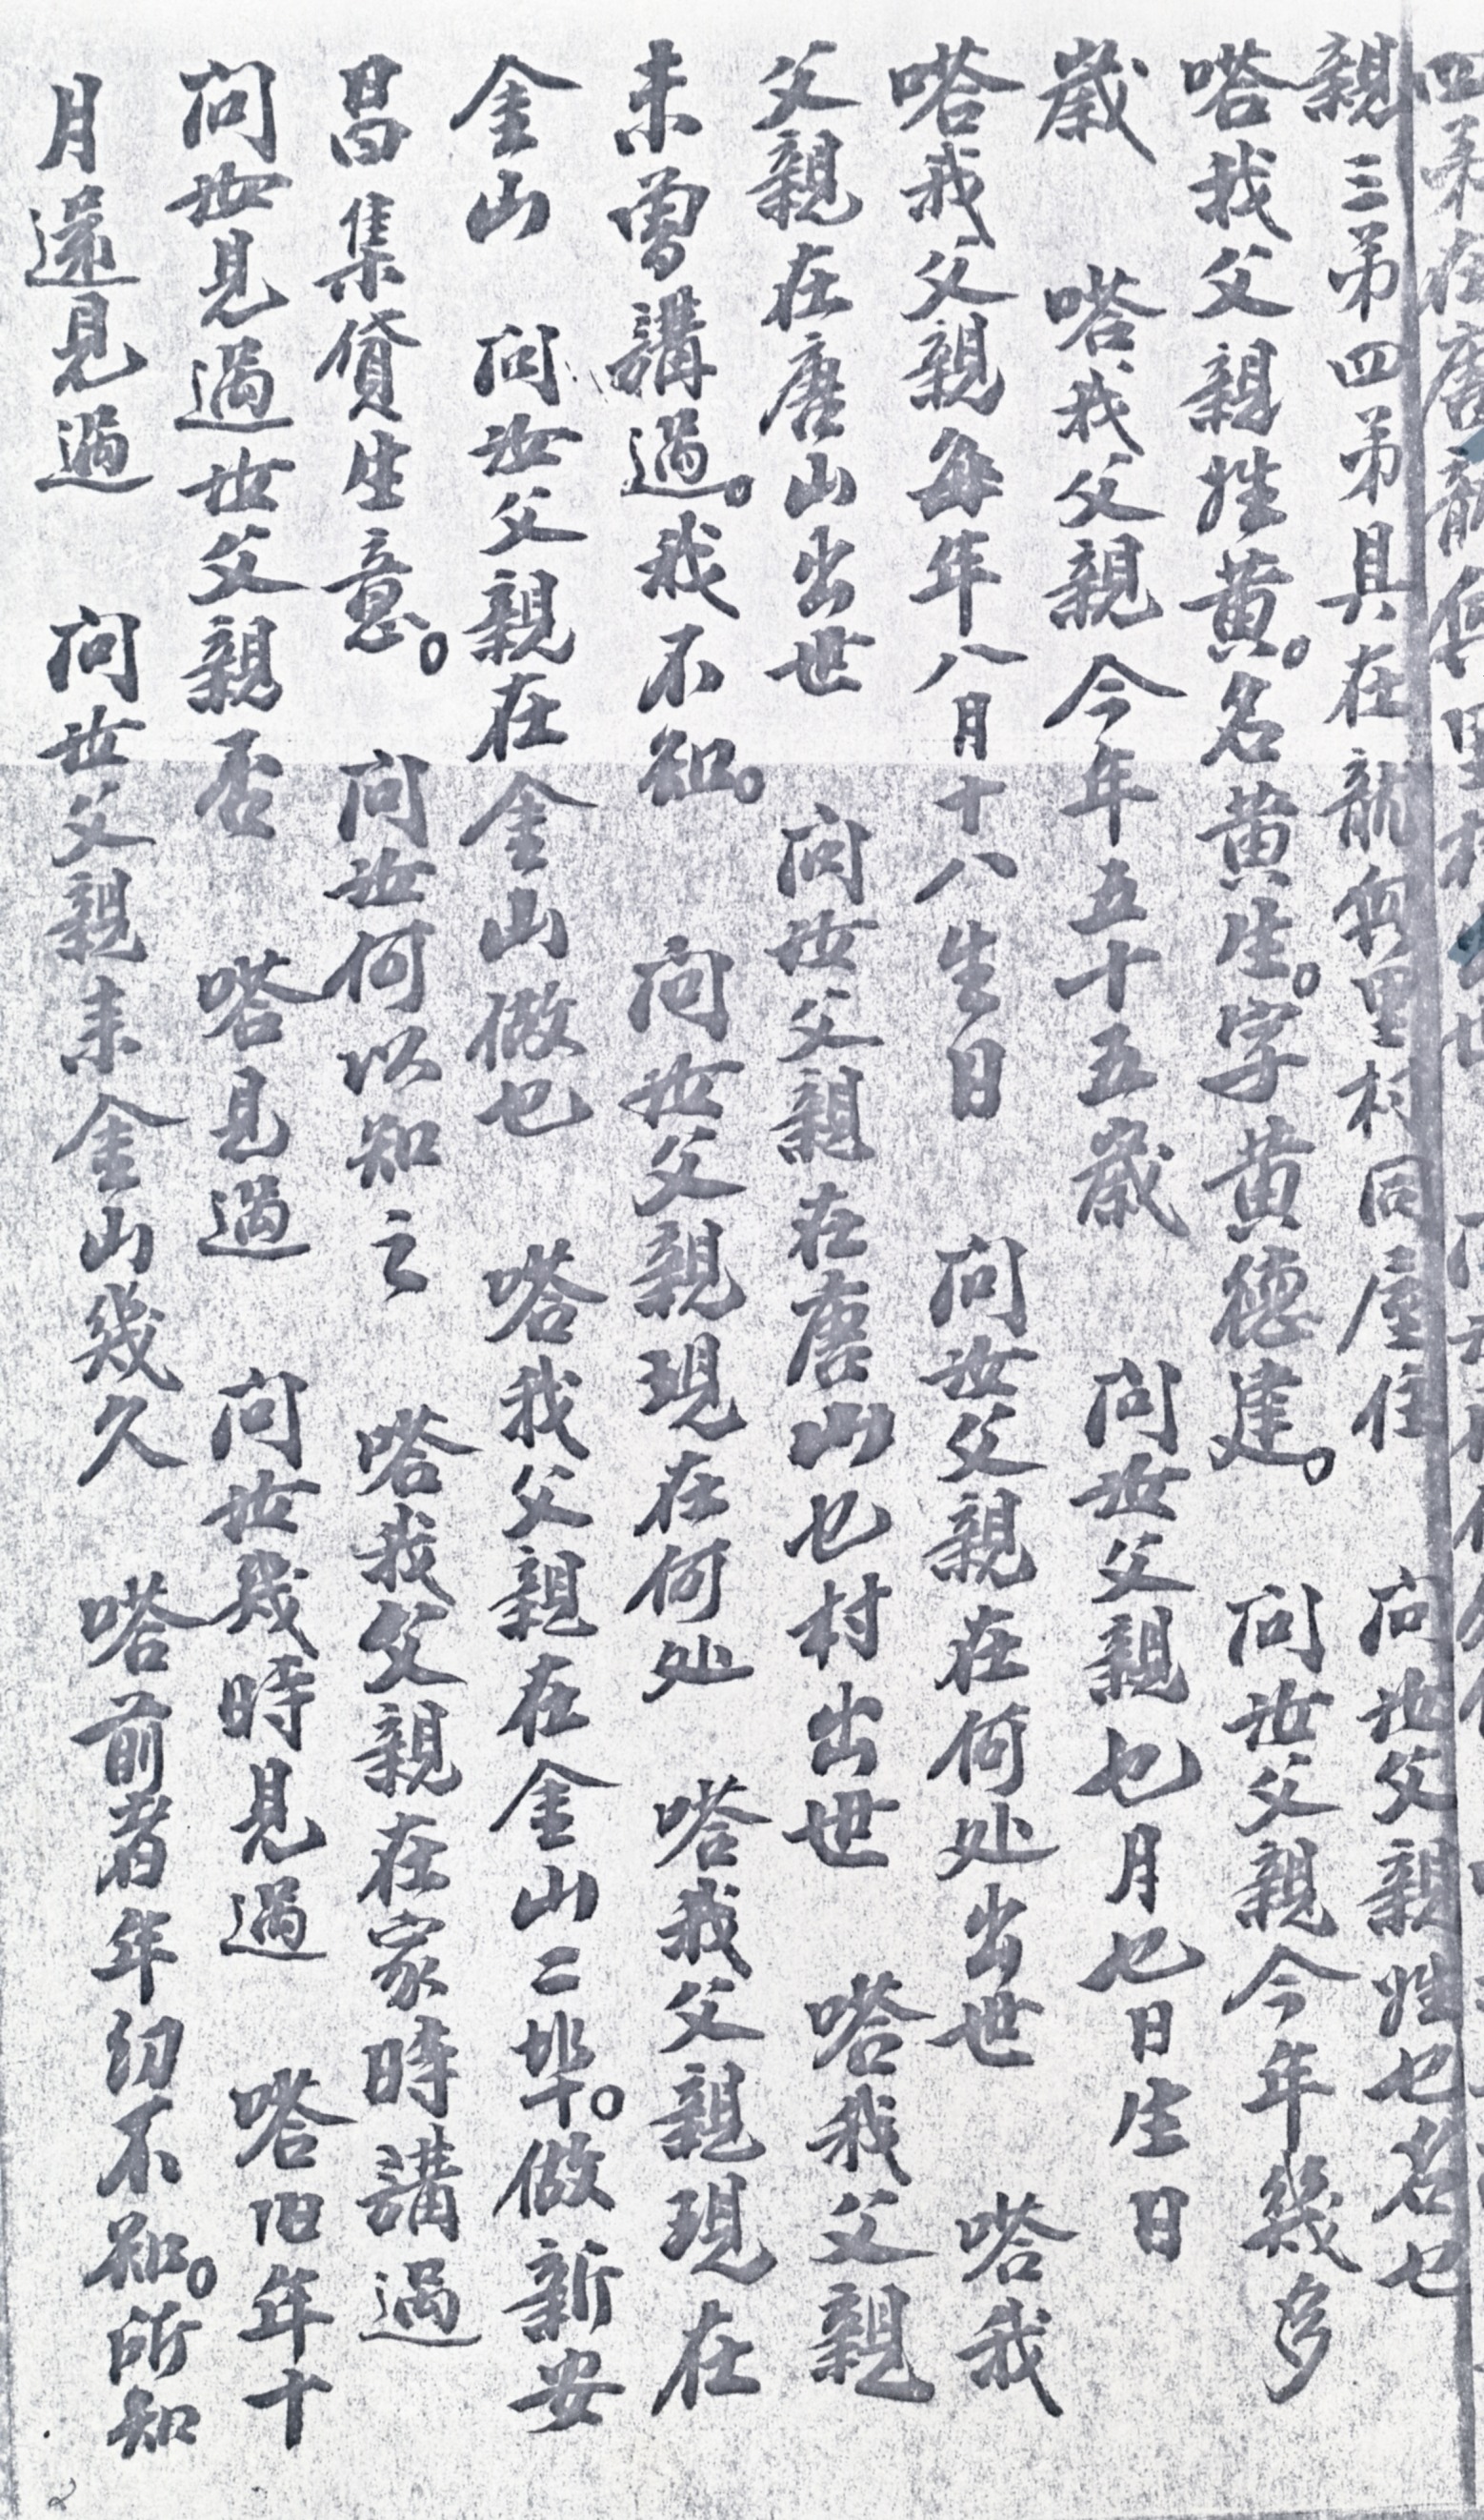 親三弟四弟具在龍𡶶里村同屋住　問汝父親姓乜名乜
嗒我父親姓黄。名黄生。字黄德建。　問汝父親今年幾多
嵗　嗒我父親今年五十五嵗　問汝父親乜月乜日生日
嗒我父親每年八月十八生日　問汝父親在何处出世　嗒我
父親在唐山出世　問汝父親在唐山乜村出世　嗒我父親
未曾講過。我不知。　問汝父親現在何处　嗒我父親現在
金山　問汝父親在金山做乜　嗒我父親在金山二埠。做新安
昌集貨生意。　問汝何以知之　嗒我父親在家時講過
問汝見過汝父親否　嗒見過　問汝幾時見過　嗒旧年十
月還見過　問汝父親来金山幾久　嗒前者年幼不知。所知